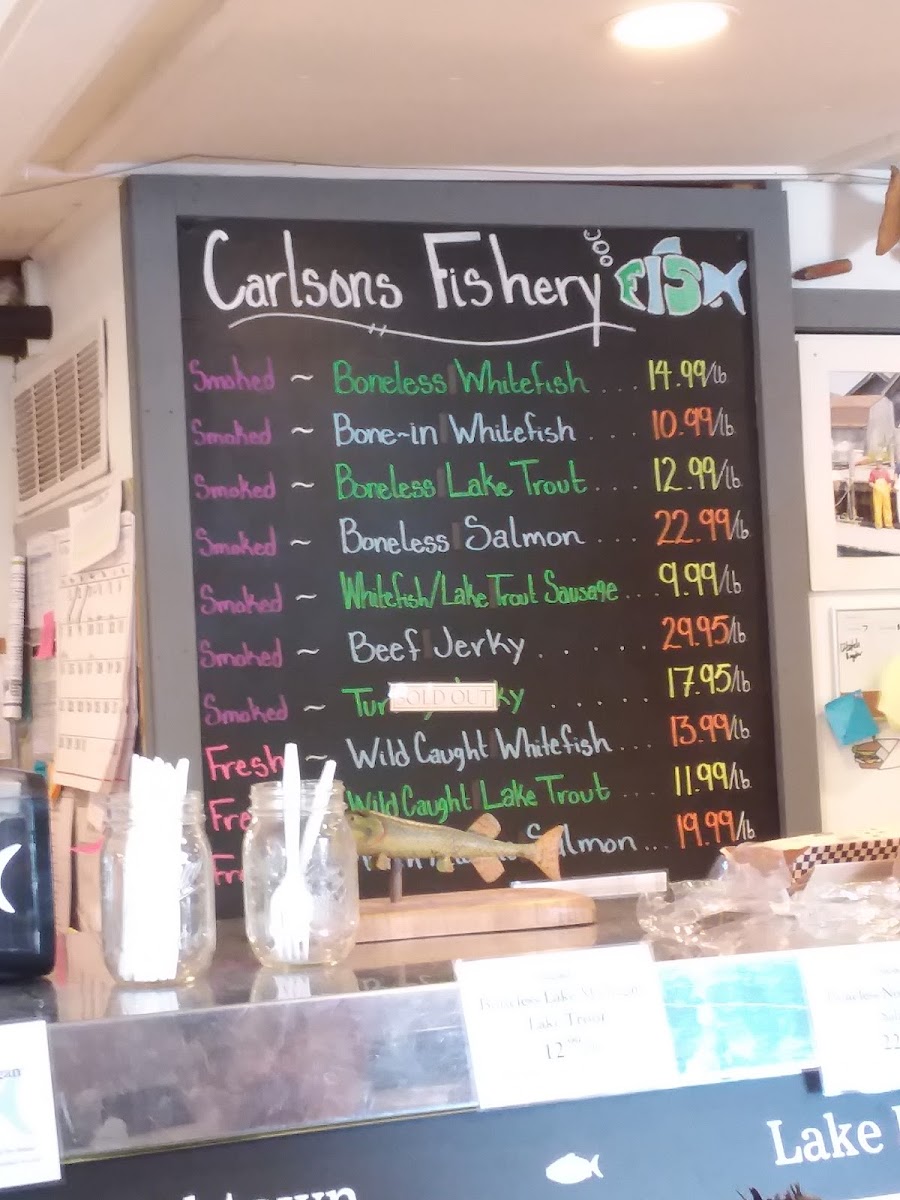 Carlsons Fishery FISH
Smoked ~ Boneless Whitefish .... 14.99/lb
Smoked ~ Bone-in Whitefish .... 10.99/lb
Smoked ~ Boneless Lake Trout .... 12.99/lb
Smoked ~ Boneless Salmon .... 22.99/lb
Smoked ~ Whitefish/Lake Trout Sausage ... 9.99/lb
Smoked ~ Beef Jerky ...... 29.95/lb
Smoked ~ Tur ky ...... 17.95/lb
SOLD OUT
Fresh ~ Wild Caught Whitefish ... 13.99/lb
Fre Wild Caught Lake Trout ... 11.99/lb
Fr Salmon ... 19.99/lb
Boneless Lake Michigan
Lake Trout
12.99
22
Lake